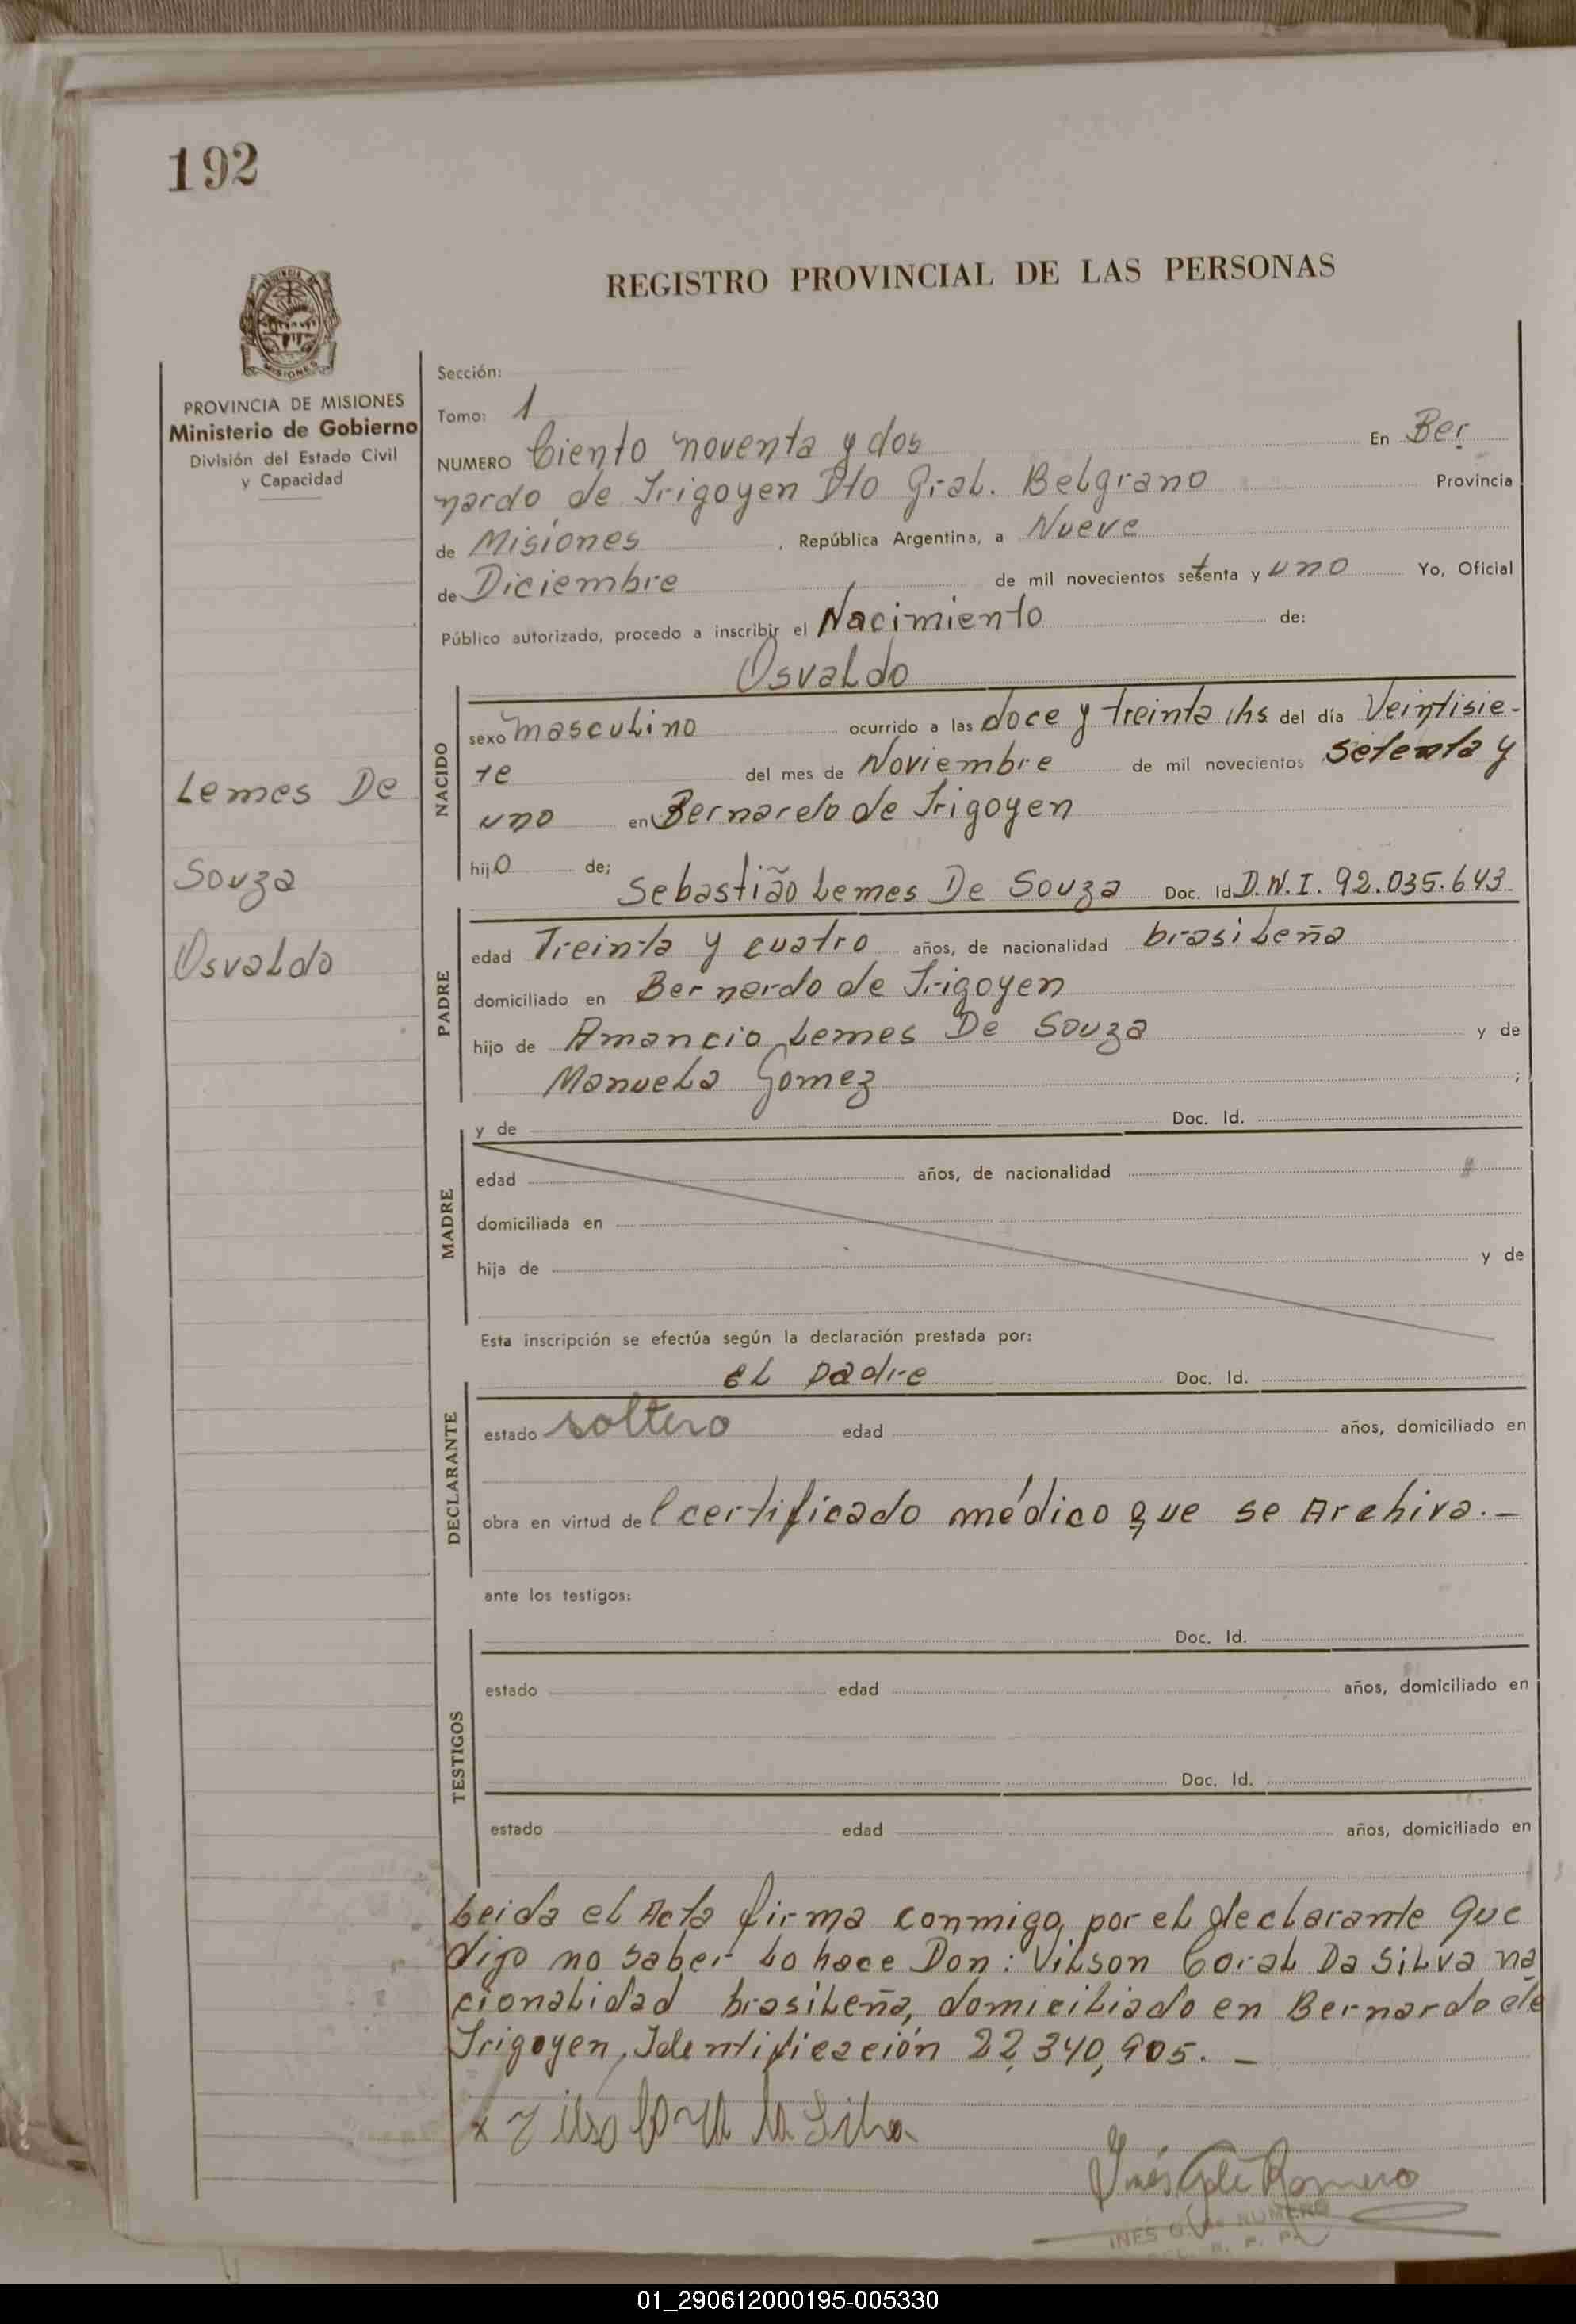 192
REGISTRO PROVINCIAL DE LAS PERSONAS
MISIONES
PROVINCIA DE MISIONES
Ministerio de Gobierno
División del Estado Civil
y Capacidad
Lemes De
Souza
Osvaldo
Sección:
Tomo: 1
NUMERO Ciento noventa y dos En Ber
nardo de Irigoyen Dto Gral. Belgrano Provincia
de Misiones, República Argentina, a Nueve
de Diciembre de mil novecientos setenta y uno Yo, Oficial
Público autorizado, procedo a inscribir el Nacimiento de:
Osvaldo
NACIDO
sexo masculino ocurrido a las doce y treinta hs del día Veintisie-
te del mes de Noviembre de mil novecientos setenta y
uno en Bernardo de Irigoyen
hijo de;
Sebastião Lemes De Souza Doc. Id D.N.I. 92.035.643
PADRE
edad Treinta y cuatro años, de nacionalidad brasileña
domiciliado en Bernardo de Irigoyen
hijo de Amancio Lemes De Souza y de
Manuela Gomez ;
y de Doc. Id.
MADRE
edad años, de nacionalidad
domiciliada en
hija de y de
Esta inscripción se efectúa según la declaración prestada por:
el padre Doc. Id.
DECLARANTE
estado soltero edad años, domiciliado en
obra en virtud del certificado médico que se Archiva.-
ante los testigos:
Doc. Id.
TESTIGOS
estado edad años, domiciliado en
Doc. Id.
estado edad años, domiciliado en
Leida el Acta firma conmigo, por el declarante que
dijo no saber lo hace Don: Vilson Coral Da Silva na
cionalidad brasileña, domiciliado en Bernardo de
Irigoyen, Identificación 22,340,905. -
Inés G. de Romero
01_290612000195-005330